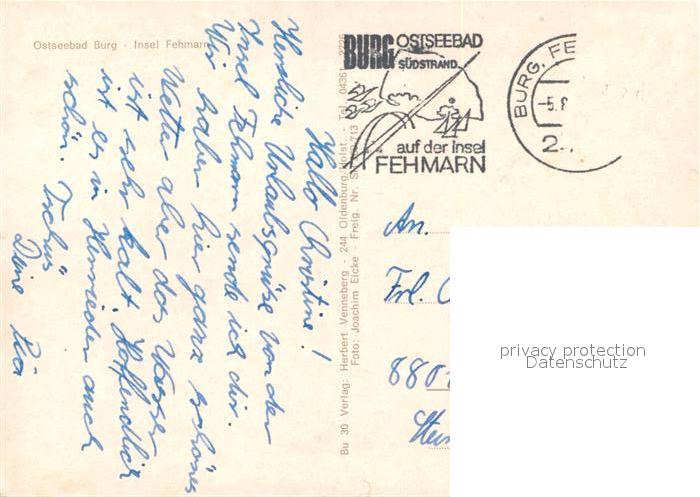 Ostseebad Burg - Insel Fehmarn
Hallo Christine!
Herzliche Urlaubsgrüße von der
Insel Fehmarn sende ich dir.
Wir haben hier ganz schönes
Wetter aber das Wasser
ist sehr kalt. Hoffentlich
ist es in Hennieden auch
schön. Tschüs
Deine Pia
Bu 30 Verlag: Herbert Venneberg - 244 Oldenburg/Holst. - Tel. 0436
Foto: Joachim Eicke - Freig. Nr. 713
BURG OSTSEEBAD
SÜDSTRAND
auf der Insel
FEHMARN
BURG, FE
-5.8
2
An.
Frl. C
880
privacy protection
Datenschutz